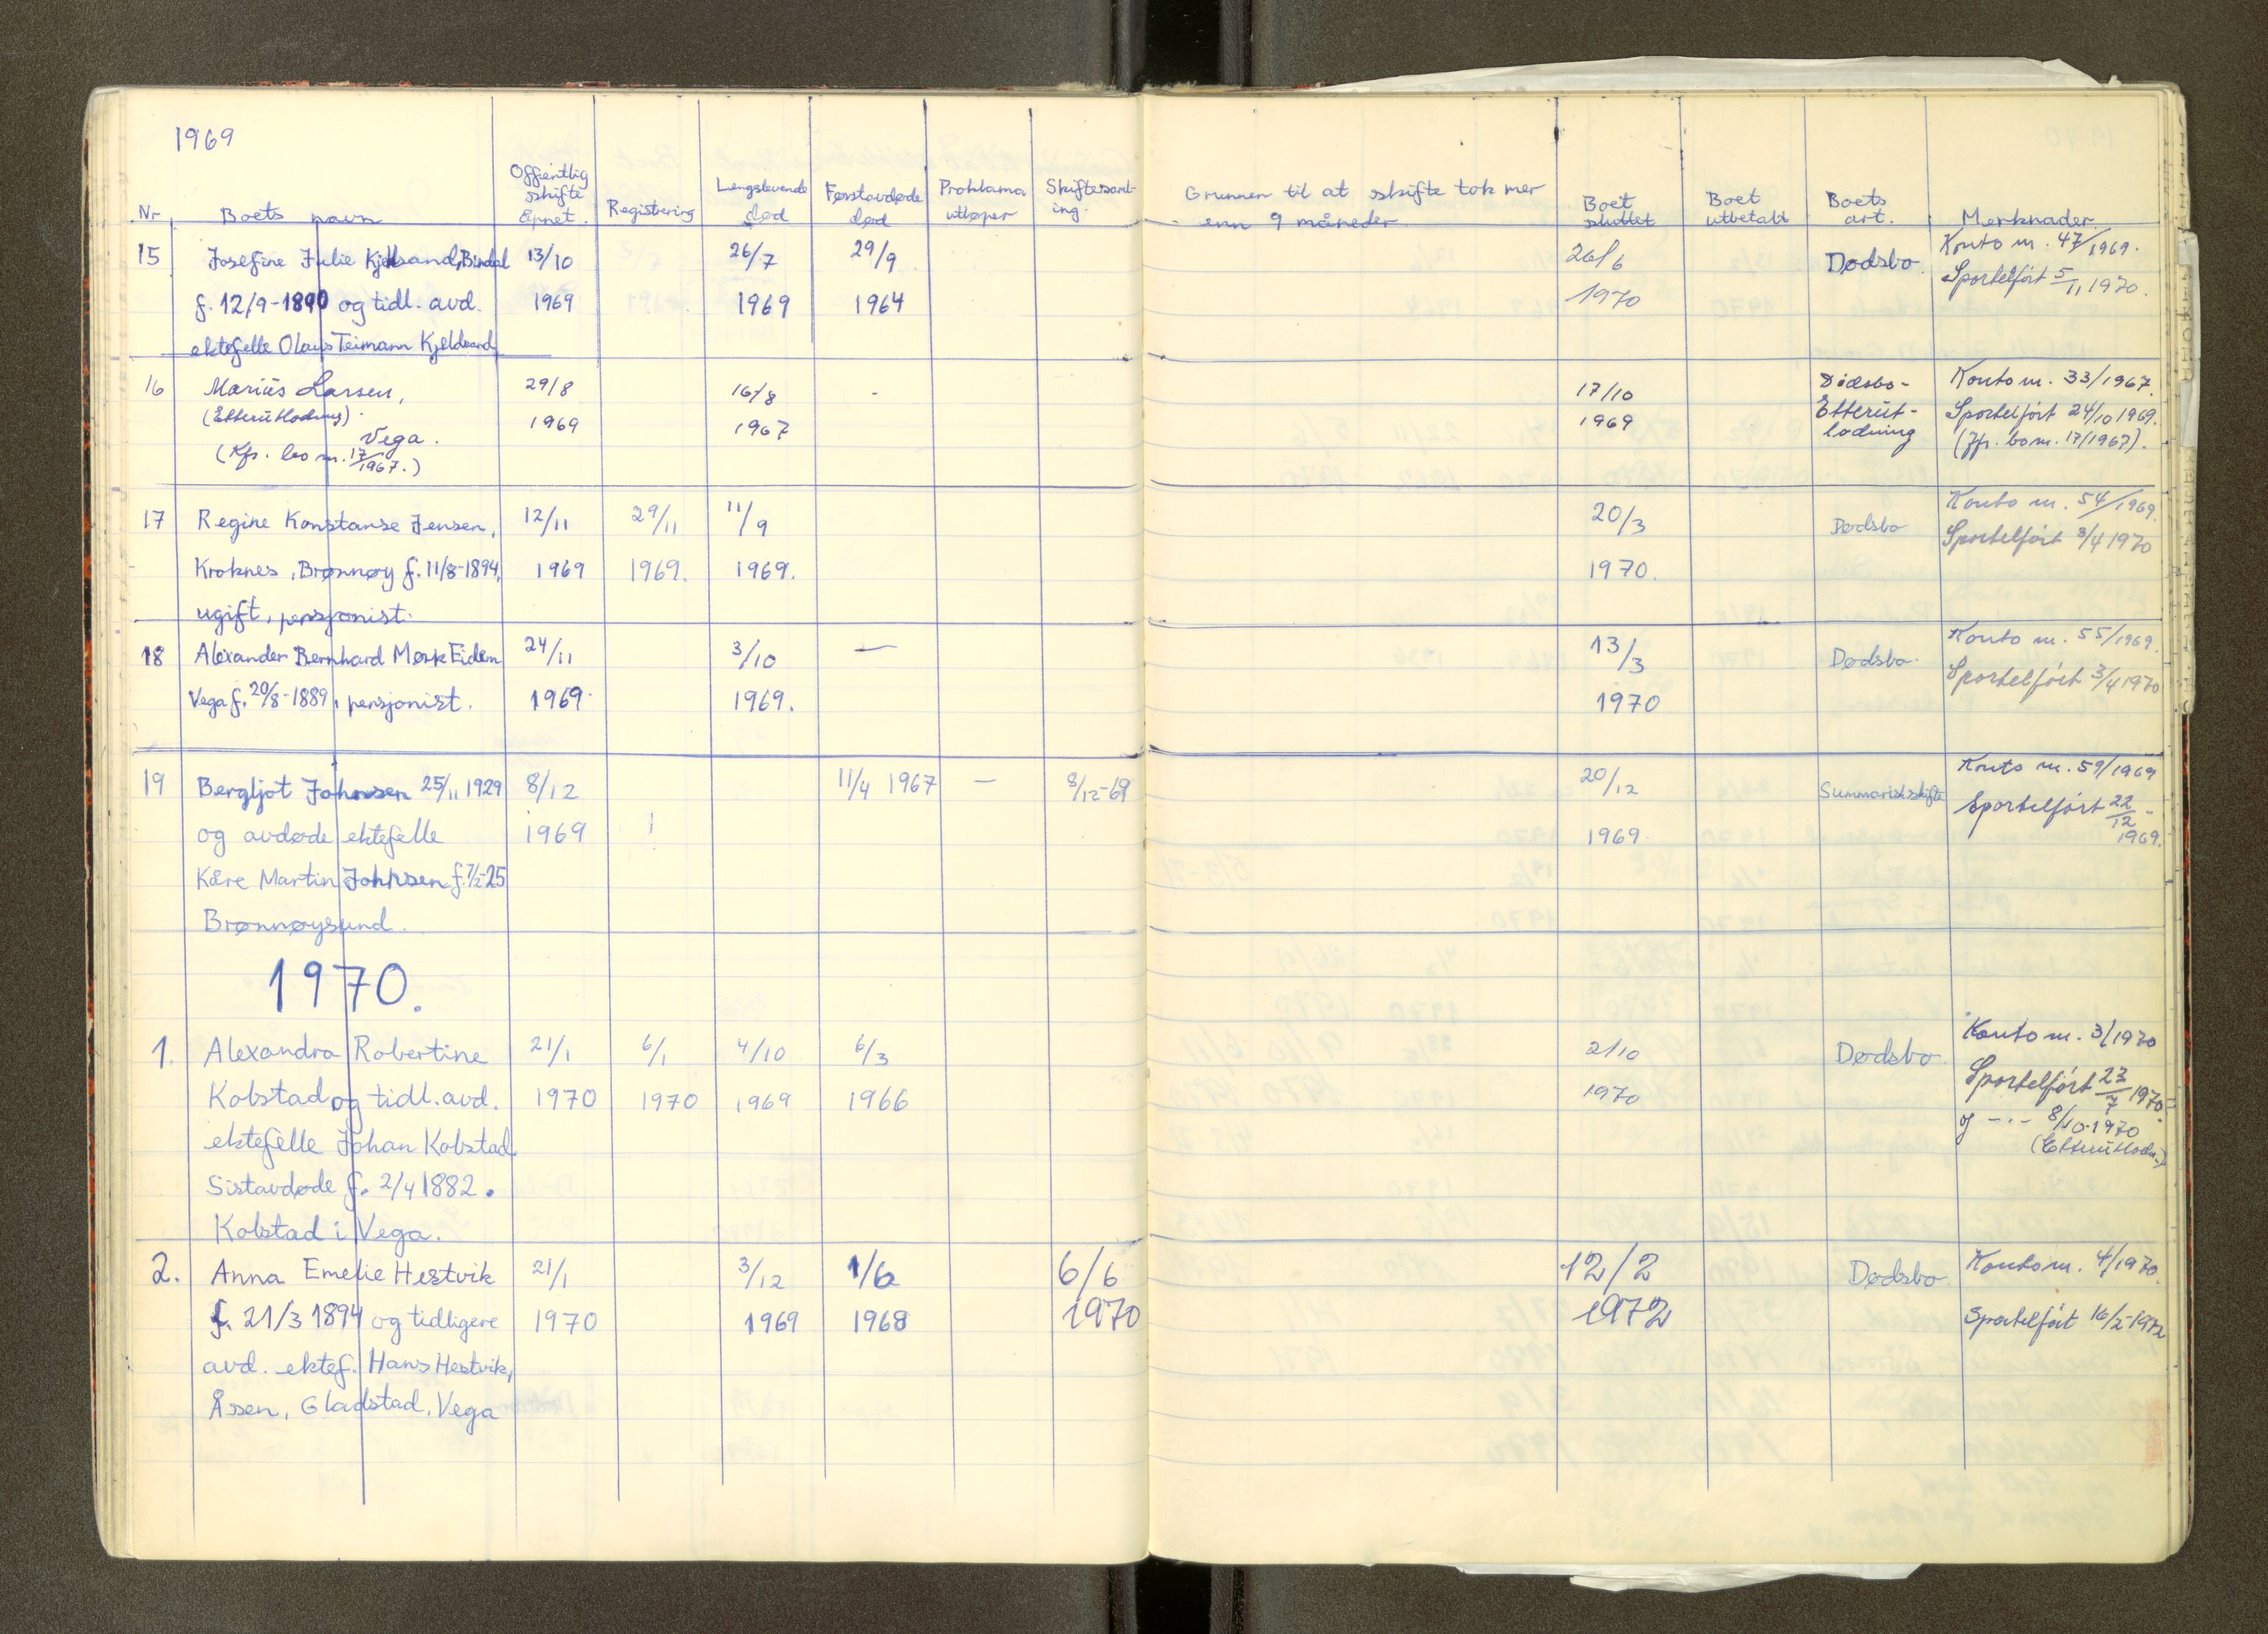 1969
Nr Boets navn Offentlig skifte åpnet. Registrering Lengstlevende død Førstavdøde død Proklama utløper Skiftesamling. Grunnen til at skifte tok mer enn 9 måneder Boet sluttet Boet utbetalt Boets art. Merknader.
15 Josefine Julie Kjelsand, Bindal 13/10 26/7 29/9 26/6 Dødsbo. Konto nr. 47/1969.
f. 12/9-1890 og tidl. avd. 1969 1969 1964 1970 Sportelført 5/11 1970.
ektefelle Olaus Teimann Kjeldsand
16 Marius Larsen, 29/8 16/8 - 17/10 Dødsbo- Konto nr. 33/1967.
(Etterutlodning). 1969 1967 1969 Etterut- Sportelført 24/10 1969.
Vega. lodning (Jfr. bo nr. 17/1967).
(Kfr. bo nr. 17/1967.)
17 Regine Konstanse Jensen, 12/11 29/11 11/9 20/3 Dødsbo Konto nr. 54/1969.
Kroknes, Brønnøy f. 11/8-1894, 1969 1969. 1969. 1970. Sportelført 3/4 1970
ugift, pensjonist.
18 Alexander Bernhard Mørk Eidem 24/11 3/10 — 13/3 Dødsbo. Konto nr. 55/1969.
Vega f. 20/8-1889, pensjonist. 1969. 1969. 1970 Sportelført 3/4 1970
19 Bergljot Johnsen 25/11 1929 8/12 11/4 1967 — 8/12-69 20/12 Summarisk skifte Konto nr. 59/1969
og avdøde ektefelle 1969 1969. Sportelført 22/12-1969.
Kåre Martin Johnsen f. 7/2-25
Brønnøysund.
1970.
1. Alexandra Robertine 21/1 6/1 4/10 6/3 2/10 Dødsbo Konto nr. 3/1970
Kolstad og tidl. avd. 1970 1970 1969 1966 1970 Sportelført 27/7 1970.
ektefelle Johan Kolstad og -"- 8/10-1970
Sistavdøde f. 2/4 1882. (Etterutlodn.)
Kolstad i Vega.
2. Anna Emelie Hestvik 21/1 3/12 1/6 6/6 12/2 Dødsbo Konto nr. 4/1970.
f. 21/3 1894 og tidligere 1970 1969 1968 1970 1972 Sportelført 16/2-1972
avd. ektef. Hans Hestvik,
Åsen, Gladstad, Vega